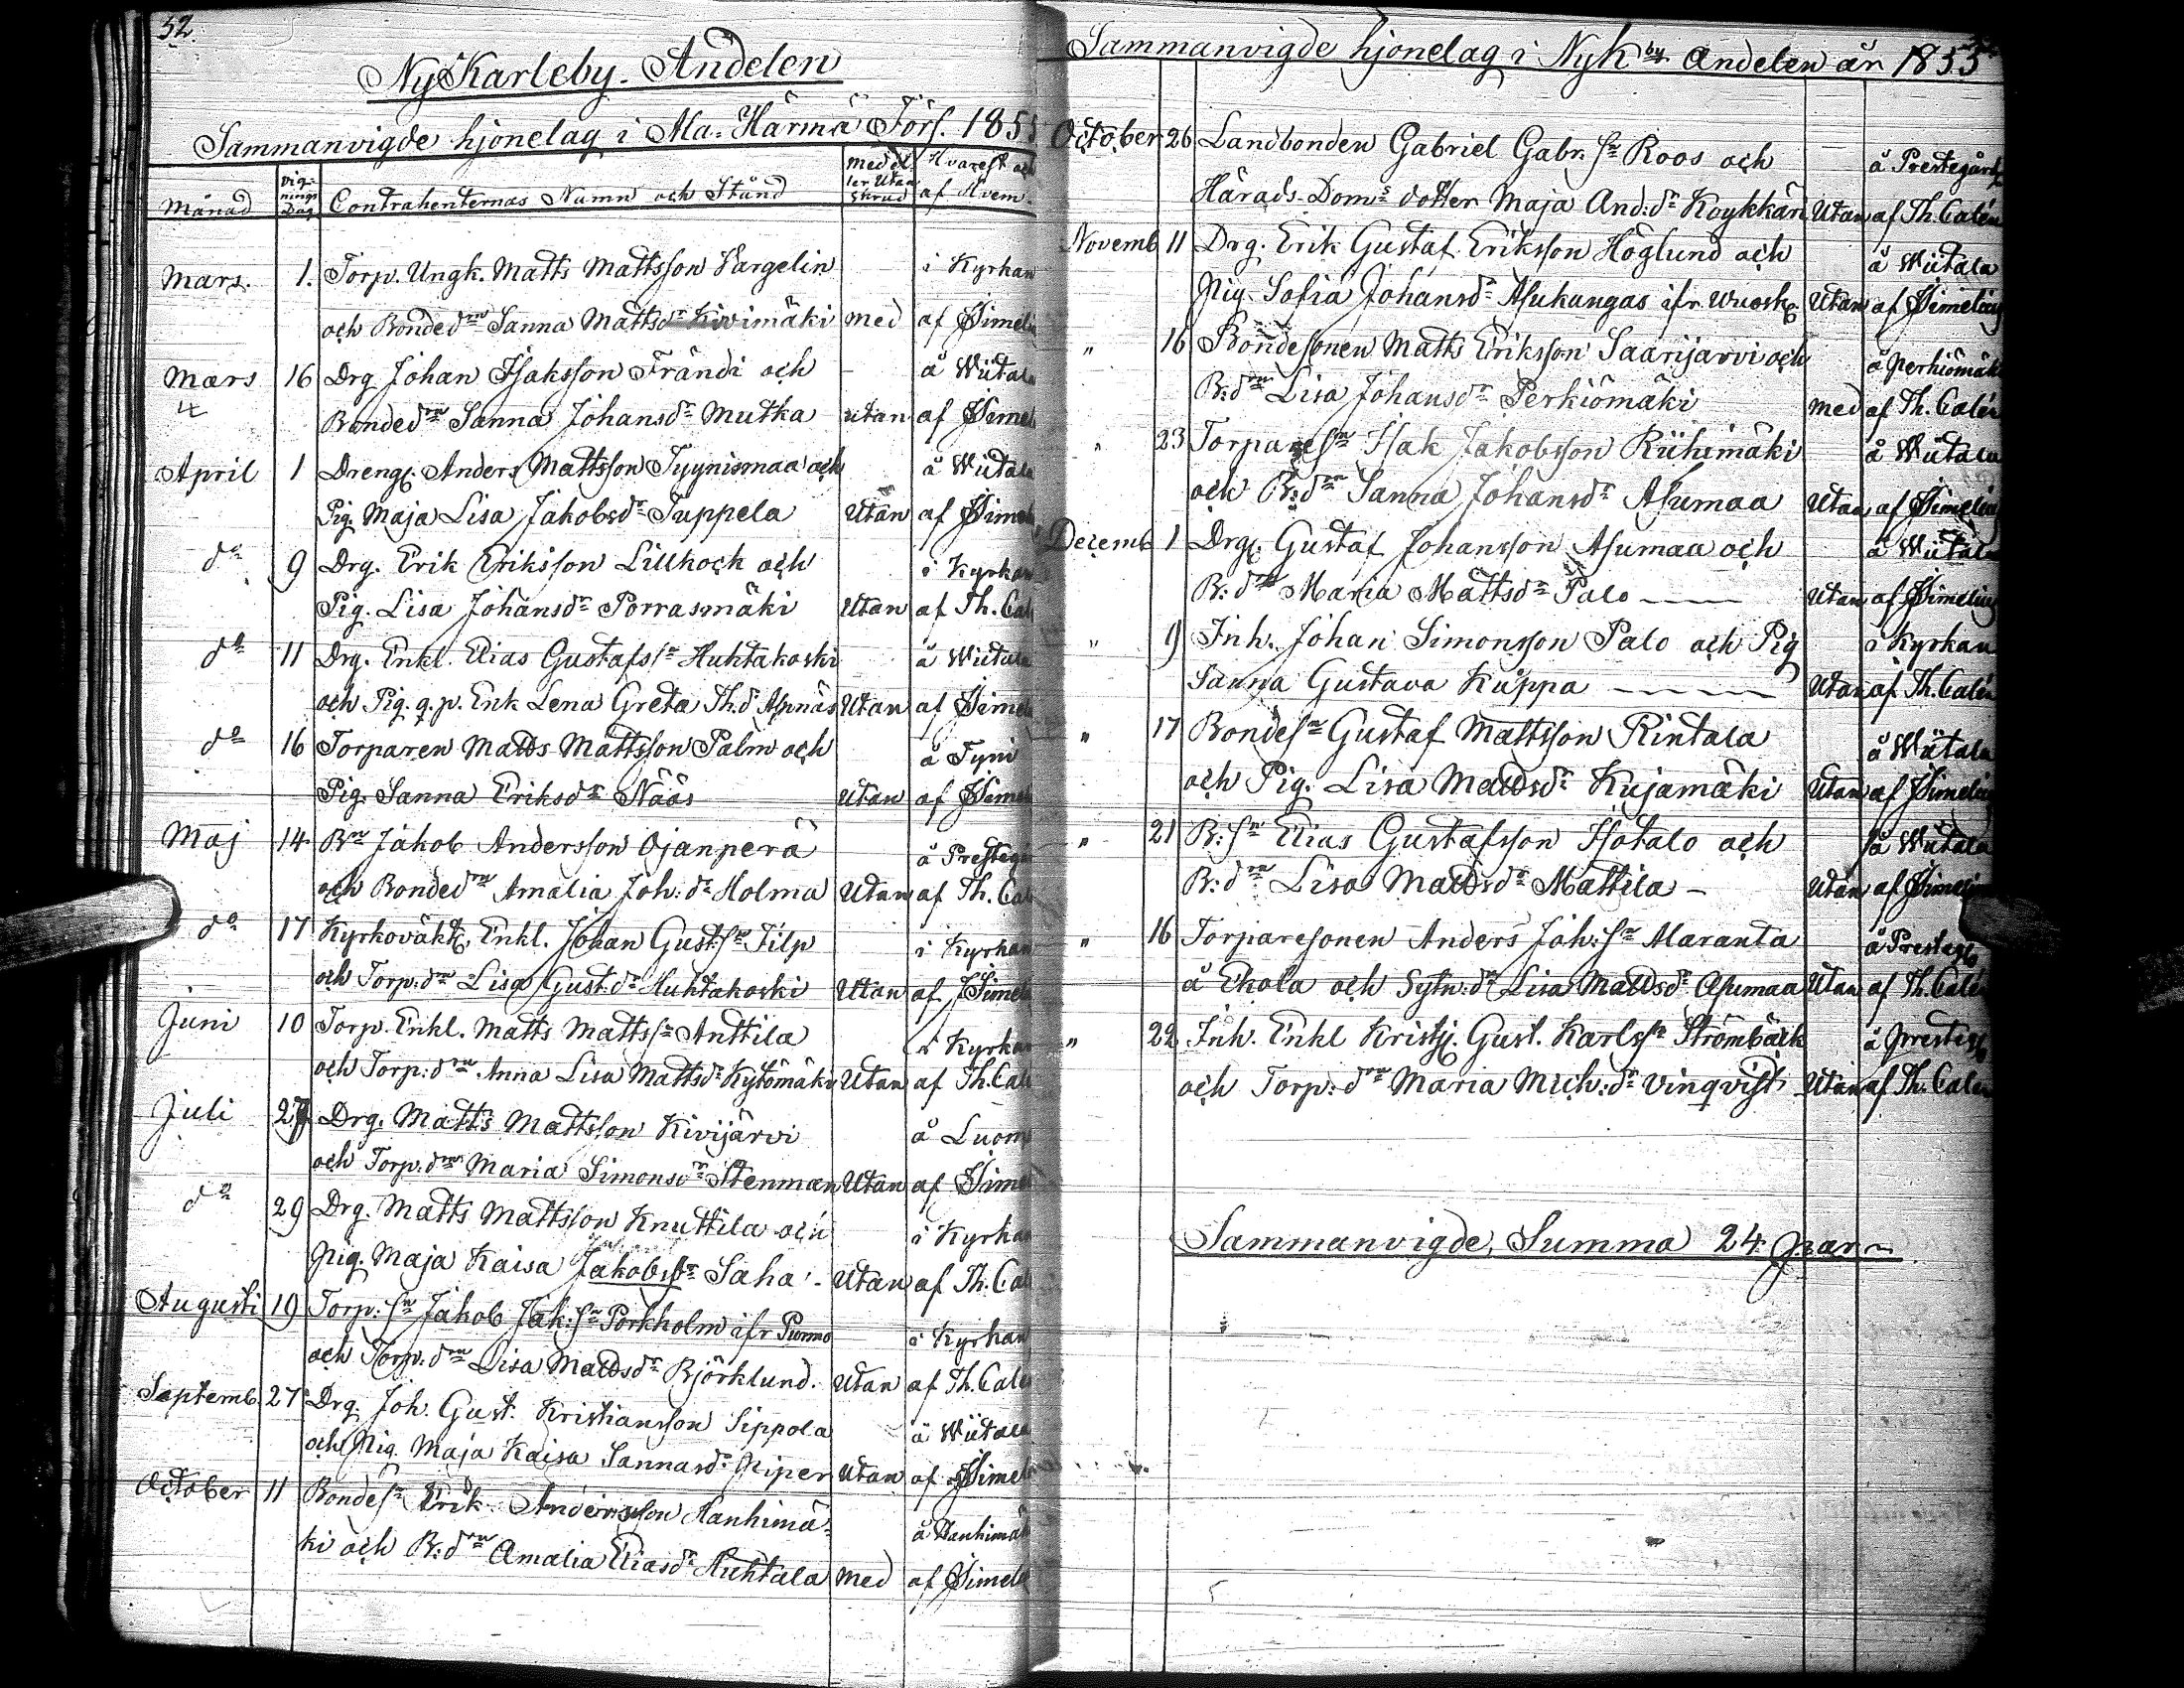 32.
NyKarleby-Andelen
Sammanvigde hjonelag i Ala-Härmä Förs. 1855
Månad
Vig-
nings
Dag
Contrahenternas Namn och Stånd
Med el-
ler Utan
Skrud
Hvarest och
af Hvem.
Mars. 1. Torp. Ungk. Matts Mattsson Vargelin i Kyrkan
och Bonded:n Sanna Mattsd:r Kivimäki med af JSimeli
Mars 16 Drg Johan Isaksson Frändi och å Wiitala
Bonded:n Sanna Johansd:r Mutka utan af JSimel
April 1 Dreng. Anders Mattsson Tyynismaa och å Wiitala
Pig. Maja Lisa Jakobsd:r Tuppela Utan af JSimel
d:o 9 Drg. Erik Eriksson Lillkock och i Kyrkan
Pig. Lisa Johansd:r Porrasmäki Utan af Th. Cal
d:o 11 Drg. Enkl. Elias Gustafss:n Huhtakoski å Wiitala
och Pig. q.p. Enk Lena Greta Th.d:r Aspnäs Utan af JSimel
d:o 16 Torparen Matts Mattsson Palm och å Tyni
Pig. Sanna Eriksd:r Näås Utan af JSimel
Maj 14. B:n Jakob Andersson Ojanperä å Prestegå
och Bonded:n Amalia Joh:d:r Holma Utan af Th. Cal
d:o 17 Kyrkoväkt. Enkl. Johan Gust:s:n Filp i Kyrkan
och Torp:d:n Lisa Gust:d:r Huhtakoski Utan af JSimel
Juni 10 Torp. Enkl. Matts Mattss:n Anttila i Kyrkan
och Torp:d:n Anna Lisa Mattsd:r Kytömäki Utan af Th. Cal
Juli 27 Drg. Matts Mattsson Kivijärvi å Luom
och Torp:d:n Maria Simonsd:r Stenman Utan af JSimel
d:o 29 Drg. Matts Mattsson Knuttila och i Kyrkan
Pig. Maja Kaisa Jakobsd:r Saha - Utan af Th. Cal
Augusti 19 Torp:s:n Jakob Jak:s:n Porkholm ifr Purmo i Kyrkan
och Torp:d:n Lisa Mattsd:r Björklund. Utan af Th. Calé
Septemb. 27 Drg. Joh. Gust. Kristiansson Sippola å Wiitala
och Pig. Maja Kaisa Sannasd:r Piper Utan af JSimel
October 11 Bondes:n Erik Andersson Hanhimä- å Hanhimäk
ki och B:d:n Amalia Eliasd:r Huhtala Med af JSimel
Sammanvigde hjonelag i Nyk:by Andelen år 1855
October 26 Landbonden Gabriel Gabr:s:n Roos och å Prestegård
Härads-Dom:s dotter Maja And:d:r Koykkäri Utan af Th. Calén
Novemb 11 Drg. Erik Gustaf Eriksson Höglund och å Wiitala
Pig. Sofia Johansd:r Asukangas ifr Wuosk. Utan af JSimelius
" 16 Bondesonen Matts Eriksson Saarijarvi och å Perkiömäki
B:d:n Lisa Johansd:r Perkiömäki med af Th. Calén
" 23 Torpares:n Isak Jakobsson Riihimäki å Wiitala
och B:d:n Sanna Johansd:r Asumaa Utan af JSimelius
Decemb 1 Drg. Gustaf Johansson Asumaa och å Wiitala
B:d:n Maria Mattsd:r Palo Utan af JSimelius
" 9 Inh. Johan Simonsson Palo och Pig i Kyrkan
Sanna Gustava Kuppa Utan af Th. Calén
" 17 Bondes:n Gustaf Mattsson Rintala å Wiitala
och Pig. Lisa Mattsd:r Kujamäki Utan af JSimelius
" 21 B:s:n Elias Gustafsson Isotalo och å Wiitala
B:d:n Lisa Mattsd:r Mattila - Utan af JSimelius
" 16 Torparesonen Anders Joh:s:n Alaranta å Presteg
å Ekola och Sytn:d:r Lisa Mattsd:r Asumaa Utan af Th. Calén
" 22 Inh. Enkl Kristj. Gust. Karlss:n Strömbäck å Presteg
och Torp:d:n Maria Mich:d:r Vinqvist Utan af Th. Calén
Sammanvigde, Summa 24 Par